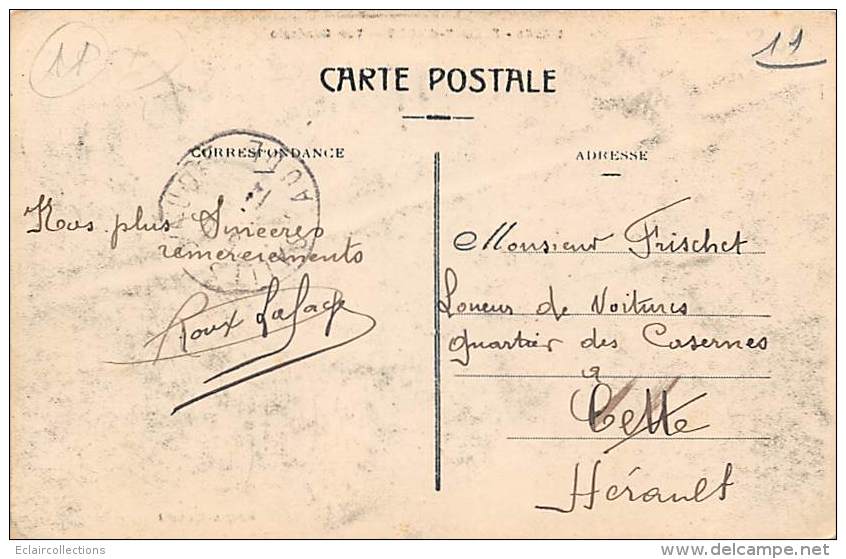 11
11
CARTE POSTALE
CORRESPONDANCE
ADRESSE
AUDE
Nos plus Sincères
remerciements
Roux Lafage
Monsieur Frischet
Loueur de Voitures
quartier des Casernes
a
Cette
Hérault
Eclaircollections
delcampe.net